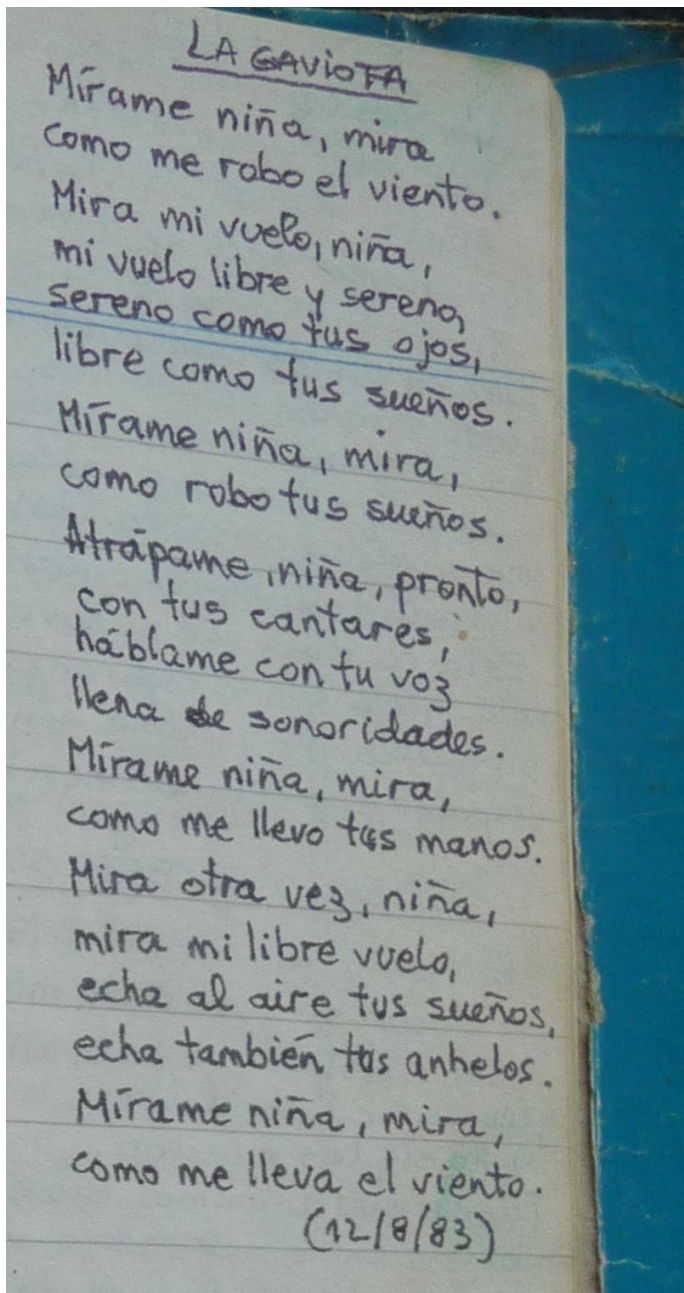 LA GAVIOTA
Mírame niña, mira
como me robo el viento.
Mira mi vuelo, niña,
mi vuelo libre y sereno,
sereno como tus ojos,
libre como tus sueños.
Mírame niña, mira,
como robo tus sueños.
Atrápame, niña, pronto,
con tus cantares,
háblame con tu voz
llena de sonoridades.
Mírame niña, mira,
como me llevo tus manos.
Mira otra vez, niña,
mira mi libre vuelo,
echa al aire tus sueños,
echa también tus anhelos.
Mírame niña, mira,
como me lleva el viento.
(12/8/83)